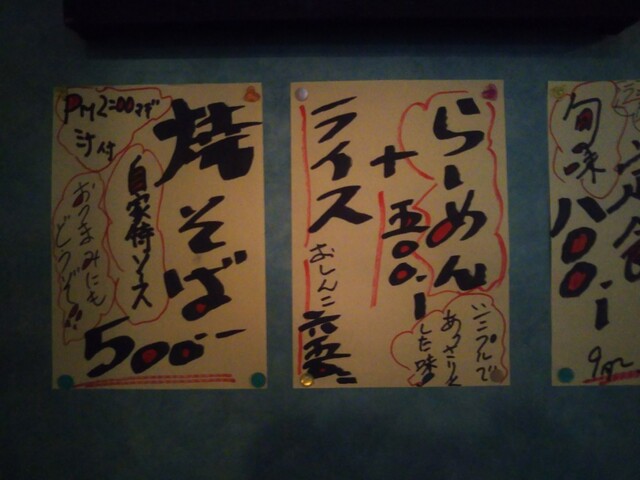 焼そば
自家侍ソース
PM2:00まで
汁付
おつまみにも
どうぞ!!
500ー
らーめん
五〇〇.ー
シンプルで
あっさりと
した味
+
ライス
おしんこ
定食
旬味
八〇〇.ー